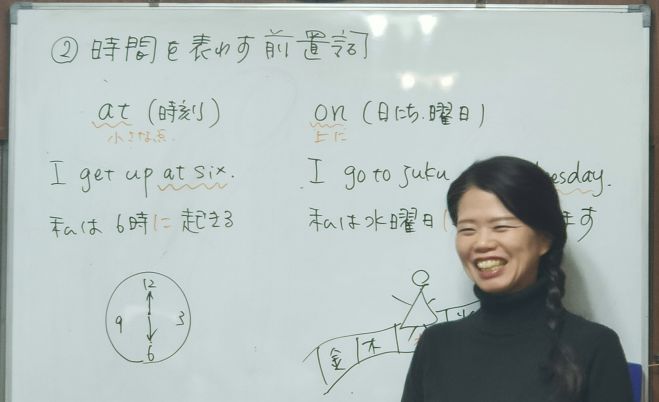 ② 時間を表わす前置詞
at (時刻)
小さな点
on (日にち、曜日)
上に
I get up at six.
私は6時に起きる
I go to juku esday.
私は水曜日 ます
12
9 3
6
金 木